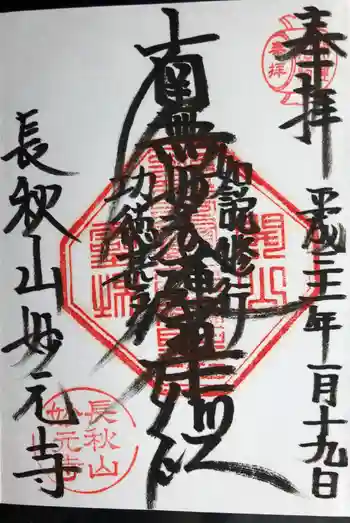 奉拝
平成三十一年一月十九日
如説修行
南無妙法蓮華経
功徳甚深
長秋山妙元寺
長秋山
妙元寺